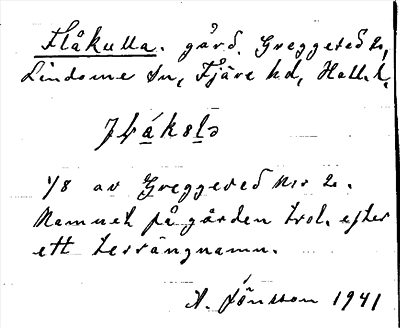 Flåkulla. gård. Greggered 2,
Lindome sn, Fjäre hd, Hall. l.
1/8 av Greggered Nr 2.
Namnet på gården trol. efter
ett terrängnamn.
A. Jönsson 1941